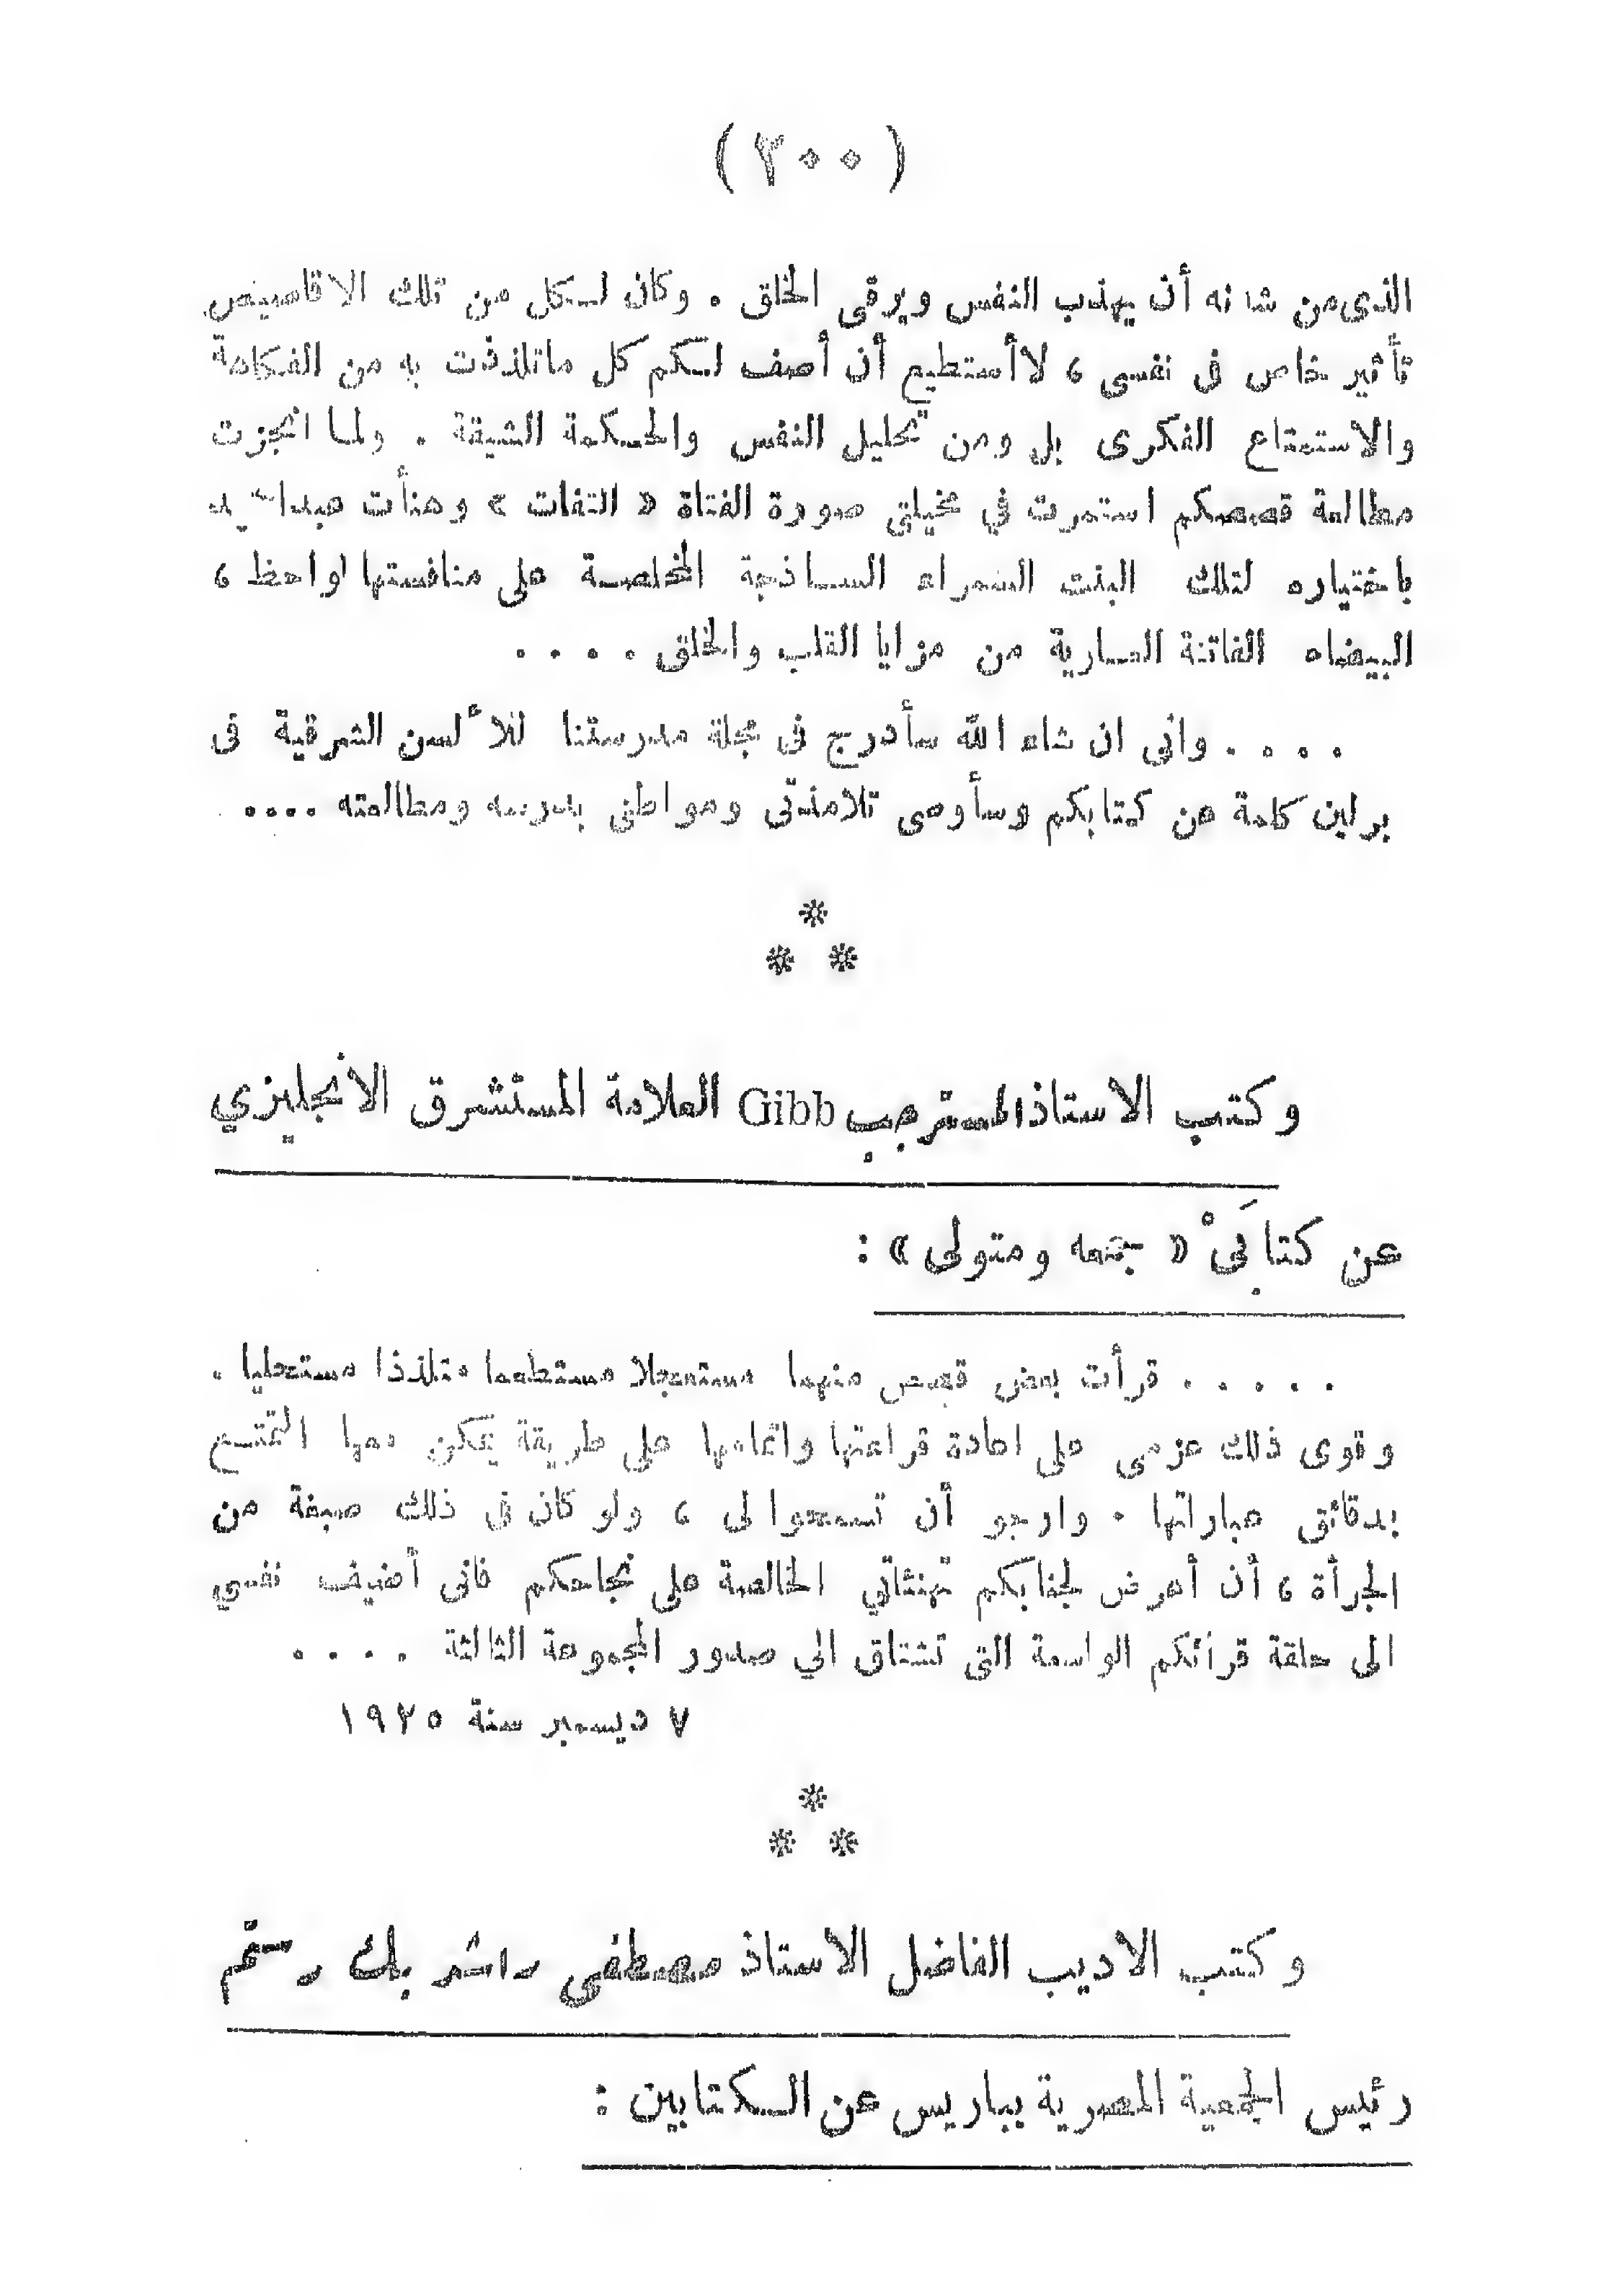 ( ٢٠٠ )
الذى من شأنه أن يهذب النفس ويرقى الخلق . وكان لكل من تلك الاقاصيص
تأثير خاص فى نفسى ، لا أستطيع أن أصف لكم كل ماتلذذت به من الفكاهة
والاستمتاع الفكرى بل ومن تحليل النفس والحكمة الشيقة . ولما انجزت
مطالعة قصصكم استمرت في مخيلتى صورة الفتاة « التفات » وهنأت
باختياره لتلك البنت السمراء الساذجة المخلصة على منافستها لواحظ ،
البيضاء الفاتنة العارية من مزايا القلب والخلق . . . .
. . . . وانى ان شاء الله سأدرج فى مجلة مدرستنا للألسن الشرقية فى
برلين كلمة عن كتابكم وسأوصى تلامذتى ومواطنى بدرسه ومطالعته ....
*
* *
وكتب الاستاذ المسترجب Gibb العلامة المستشرق الانجليزي
عن كتابَىْ « جمعه ومتولى » :
. . . . . قرأت بعض قصص منهما مستعجلا مستطعما متلذذا مستحليا .
وقوى ذلك عزمى على اعادة قراءتها واتمامها على طريقة يمكن معها التمتع
بدقائق عباراتها . وارجو أن تسمحوا لى ، ولو كان فى ذلك صبغة من
الجرأة ، أن أعرض لجنابكم تهنئاتي الخالصة على نجاحكم فانى أضيف نفسي
الى حلقة قرائكم الواسعة التى تشتاق الي صدور المجموعة الثالثة . . . .
٧ ديسمبر سنة ١٩٢٥
*
* *
وكتب الاديب الفاضل الاستاذ مصطفى راشد بك رستم
رئيس الجمعية المصرية بباريس عن الكتابين :